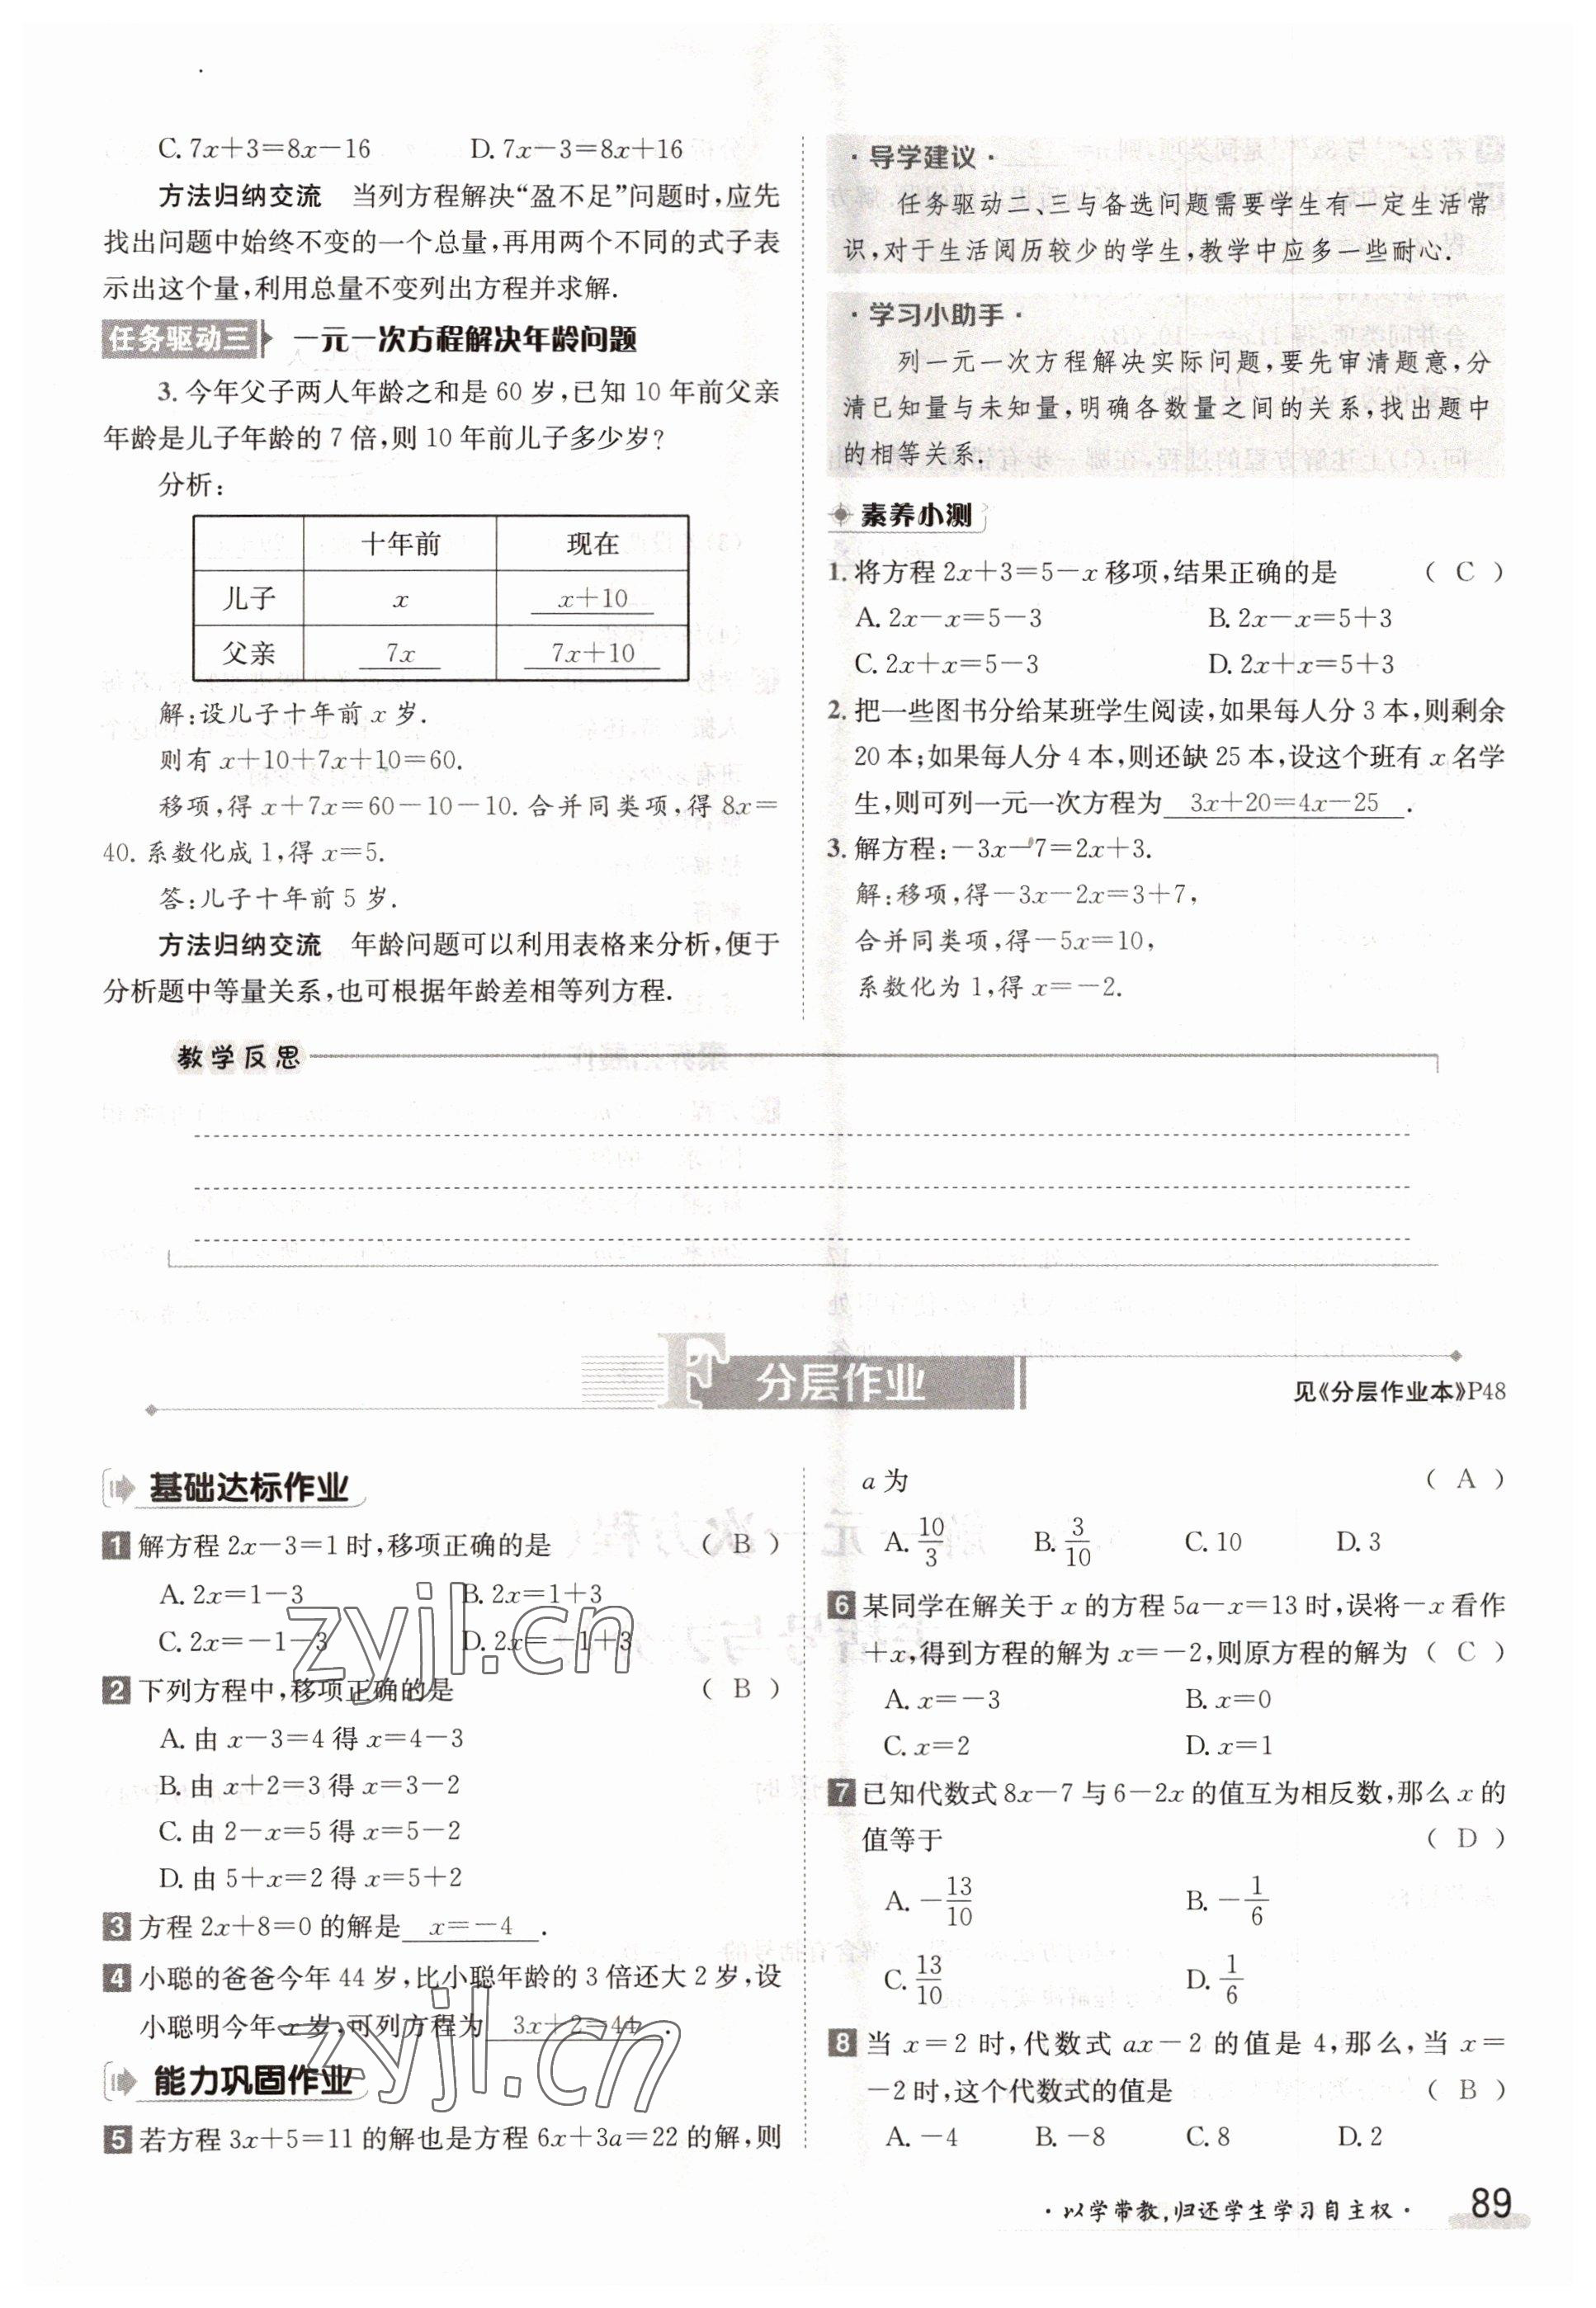 C. 7x+3=8x-16 D. 7x-3=8x+16
方法归纳交流 当列方程解决“盈不足”问题时,应先
找出问题中始终不变的一个总量,再用两个不同的式子表
示出这个量,利用总量不变列出方程并求解.
任务驱动三 一元一次方程解决年龄问题
3. 今年父子两人年龄之和是 60 岁,已知 10 年前父亲
年龄是儿子年龄的 7 倍,则 10 年前儿子多少岁?
分析:
十年前 现在
儿子 x x+10
父亲 7x 7x+10
解:设儿子十年前 x 岁.
则有 x+10+7x+10=60.
移项,得 x+7x=60-10-10. 合并同类项,得 8x=
40. 系数化成 1,得 x=5.
答:儿子十年前 5 岁.
方法归纳交流 年龄问题可以利用表格来分析,便于
分析题中等量关系,也可根据年龄差相等列方程.
·导学建议·
任务驱动二、三与备选问题需要学生有一定生活常
识,对于生活阅历较少的学生,教学中应多一些耐心.
·学习小助手·
列一元一次方程解决实际问题,要先审清题意,分
清已知量与未知量,明确各数量之间的关系,找出题中
的相等关系.
素养小测
1. 将方程 2x+3=5-x 移项,结果正确的是 ( C )
A. 2x-x=5-3 B. 2x-x=5+3
C. 2x+x=5-3 D. 2x+x=5+3
2. 把一些图书分给某班学生阅读,如果每人分 3 本,则剩余
20 本;如果每人分 4 本,则还缺 25 本,设这个班有 x 名学
生,则可列一元一次方程为 3x+20=4x-25 .
3. 解方程:-3x-7=2x+3.
解:移项,得-3x-2x=3+7,
合并同类项,得-5x=10,
系数化为 1,得 x=-2.
教学反思
F 分层作业
见《分层作业本》P48
基础达标作业
1 解方程 2x-3=1 时,移项正确的是 ( B )
A. 2x=1-3 B. 2x=1+3
C. 2x=-1-3 D. 2x=-1+3
2 下列方程中,移项正确的是 ( B )
A. 由 x-3=4 得 x=4-3
B. 由 x+2=3 得 x=3-2
C. 由 2-x=5 得 x=5-2
D. 由 5+x=2 得 x=5+2
3 方程 2x+8=0 的解是 x=-4 .
4 小聪的爸爸今年 44 岁,比小聪年龄的 3 倍还大 2 岁,设
小聪明今年 x 岁,可列方程为 3x+2=44 .
能力巩固作业
5 若方程 3x+5=11 的解也是方程 6x+3a=22 的解,则
a 为 ( A )
A. 10/3 B. 3/10 C. 10 D. 3
6 某同学在解关于 x 的方程 5a-x=13 时,误将-x 看作
+x,得到方程的解为 x=-2,则原方程的解为 ( C )
A. x=-3 B. x=0
C. x=2 D. x=1
7 已知代数式 8x-7 与 6-2x 的值互为相反数,那么 x 的
值等于 ( D )
A. -13/10 B. -1/6
C. 13/10 D. 1/6
8 当 x=2 时,代数式 ax-2 的值是 4,那么,当 x=
-2 时,这个代数式的值是 ( B )
A. -4 B. -8 C. 8 D. 2
·以学带教,归还学生学习自主权· 89
zyjl.cn
zyjl.cn